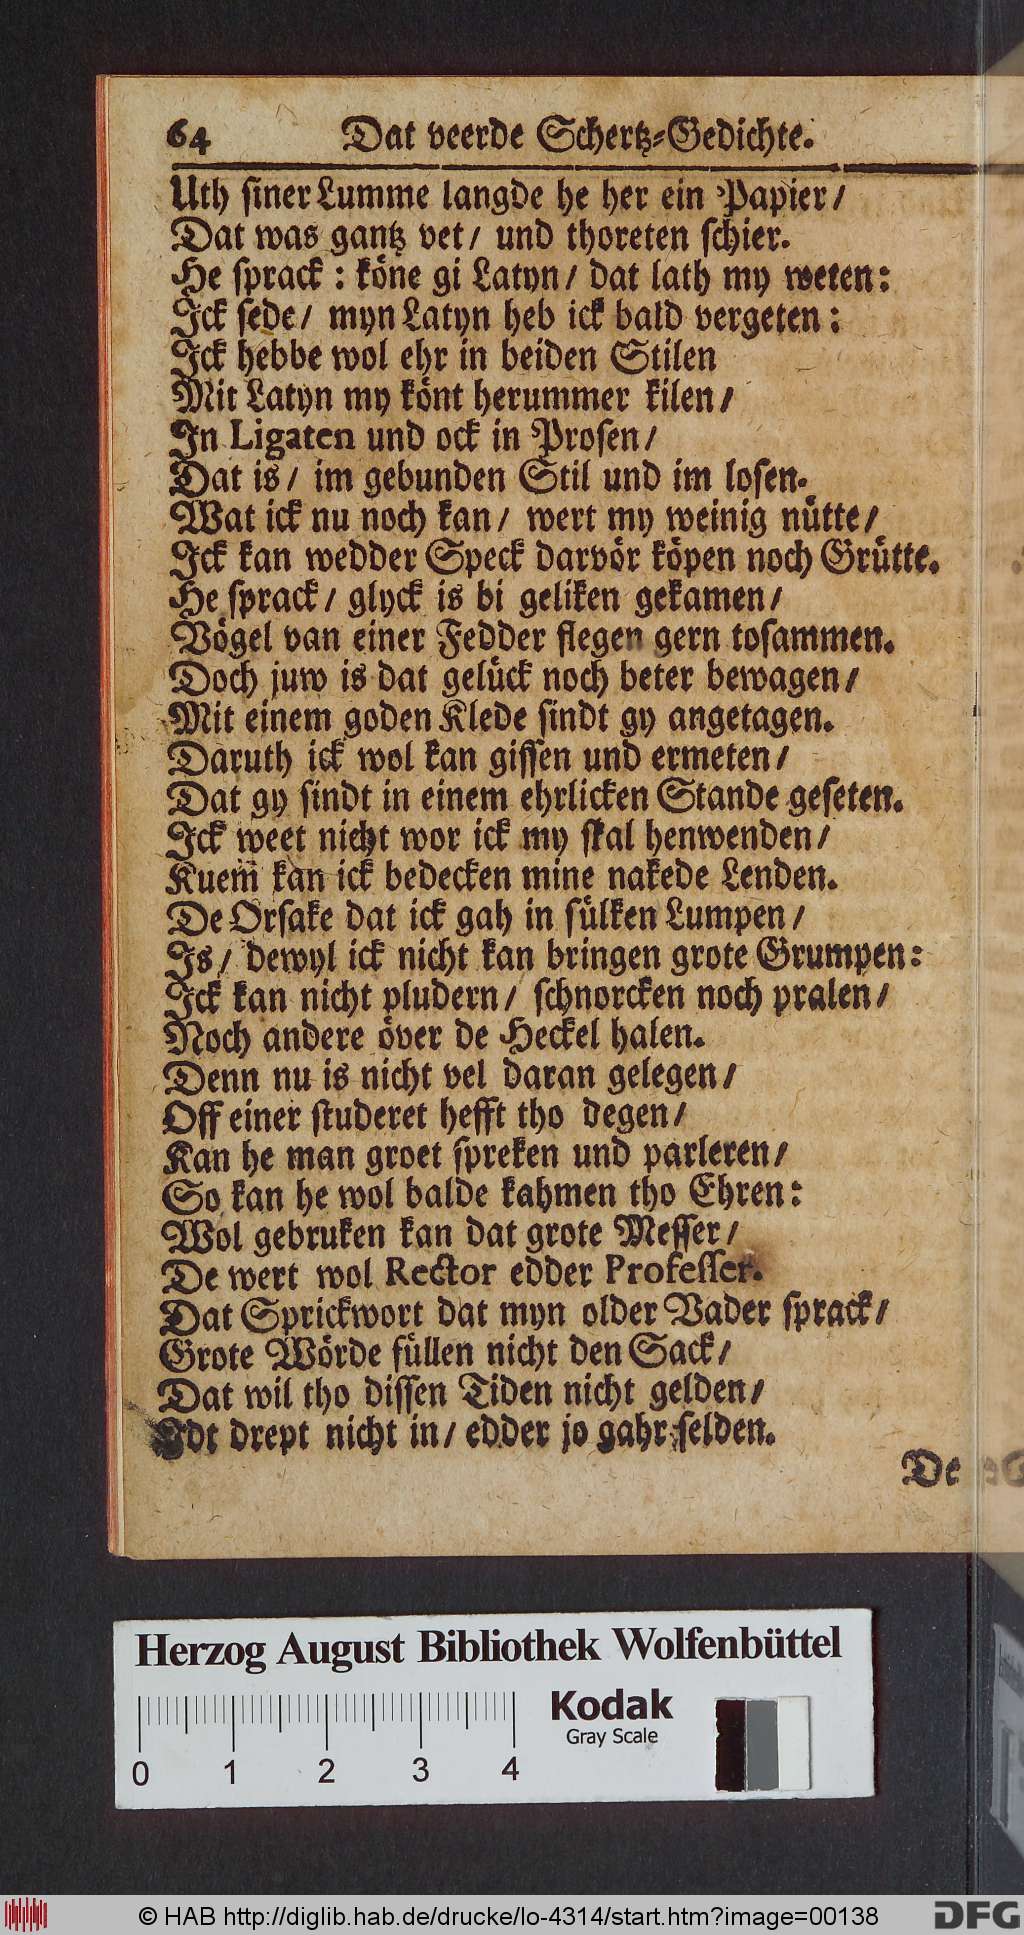 64 Dat veerde Schertz-Gedichte.
Uth siner Lumme langde he her ein Papier/
Dat was gantz vet/ und thoreten schier.
He sprack: köne gi Latyn/ dat lath my weten:
Ick sede/ myn Latyn heb ick bald vergeten:
Ick hebbe wol ehr in beiden Stilen
Mit Latyn my könt herummer kilen/
In Ligaten und ock in Prosen/
Dat is/ im gebunden Stil und im losen.
Wat ick nu noch kan/ wert my weinig nütte/
Ick kan wedder Speck darvör köpen noch Grütte.
He sprack/ glyck is bi geliken gekamen/
Vögel van einer Fedder flegen gern tosammen.
Doch juw is dat gelück noch beter bewagen/
Mit einem goden Klede sindt gy angetagen.
Daruth ick wol kan gissen und ermeten/
Dat gy sindt in einem ehrlicken Stande geseten.
Ick weet nicht wor ick my skal henwenden/
Kuem̄ kan ick bedecken mine nakede Lenden.
De Orsake dat ick gah in sülken Lumpen/
Is/ dewyl ick nicht kan bringen grote Grumpen:
Ick kan nicht pludern/ schnorcken noch pralen/
Noch andere över de Heckel halen.
Denn nu is nicht vel daran gelegen/
Off einer studeret hefft tho degen/
Kan he man groet spreken und parleren/
So kan he wol balde kahmen tho Ehren:
Wol gebruken kan dat grote Messer/
De wert wol Rector edder Professer.
Dat Sprickwort dat myn older Vader sprack/
Grote Wörde füllen nicht den Sack/
Dat wil tho dissen Tiden nicht gelden/
Idt drept nicht in/ edder jo gahr selden.
De
Herzog August Bibliothek Wolfenbüttel
Kodak
Gray Scale
0 1 2 3 4
© HAB http://diglib.hab.de/drucke/lo-4314/start.htm?image=00138
DFG